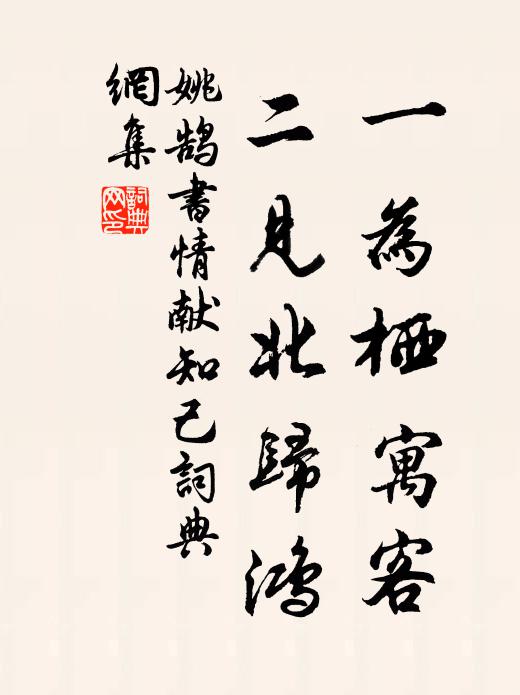 一為栖寓客
二見北歸鴻
姚鵠書情献知己詞典
網集
詞典網印